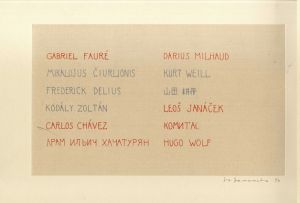 GABRIEL FAURÉ
MIKALOJUS ČIURLIONIS
FREDERICK DELIUS
KODÁLY ZOLTÁN
CARLOS CHÁVEZ
АРАМ ИЛЬИЧ ХАЧАТУРЯН
DARIUS MILHAUD
KURT WEILL
山田
LEOŠ JANÁČEK
КОМИТАС
HUGO WOLF